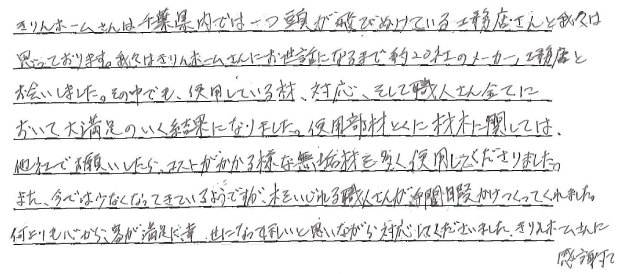 きりんホームさんは千葉県内では一つ頭が飛びぬけている工務店さんと我々は
思っております。我々はきりんホームさんにお世話になるまで約20社のメーカー、工務店と
お会いしました。その中でも、使用している材、対応、そして職人さん全てに
おいて大満足のいく結果になりました。使用部材とくに材木に関しては、
他社でお願いしたら、コストがかかる様な無垢材を多く使用してくださりました。
また、今では少なくなってきているようですが、木をいじれる職人さんが手間暇かけつくってくれました。
何よりも心から、客が満足に、幸せになって欲しいと思いながら対応してくださいました、きりんホームさんに
感謝